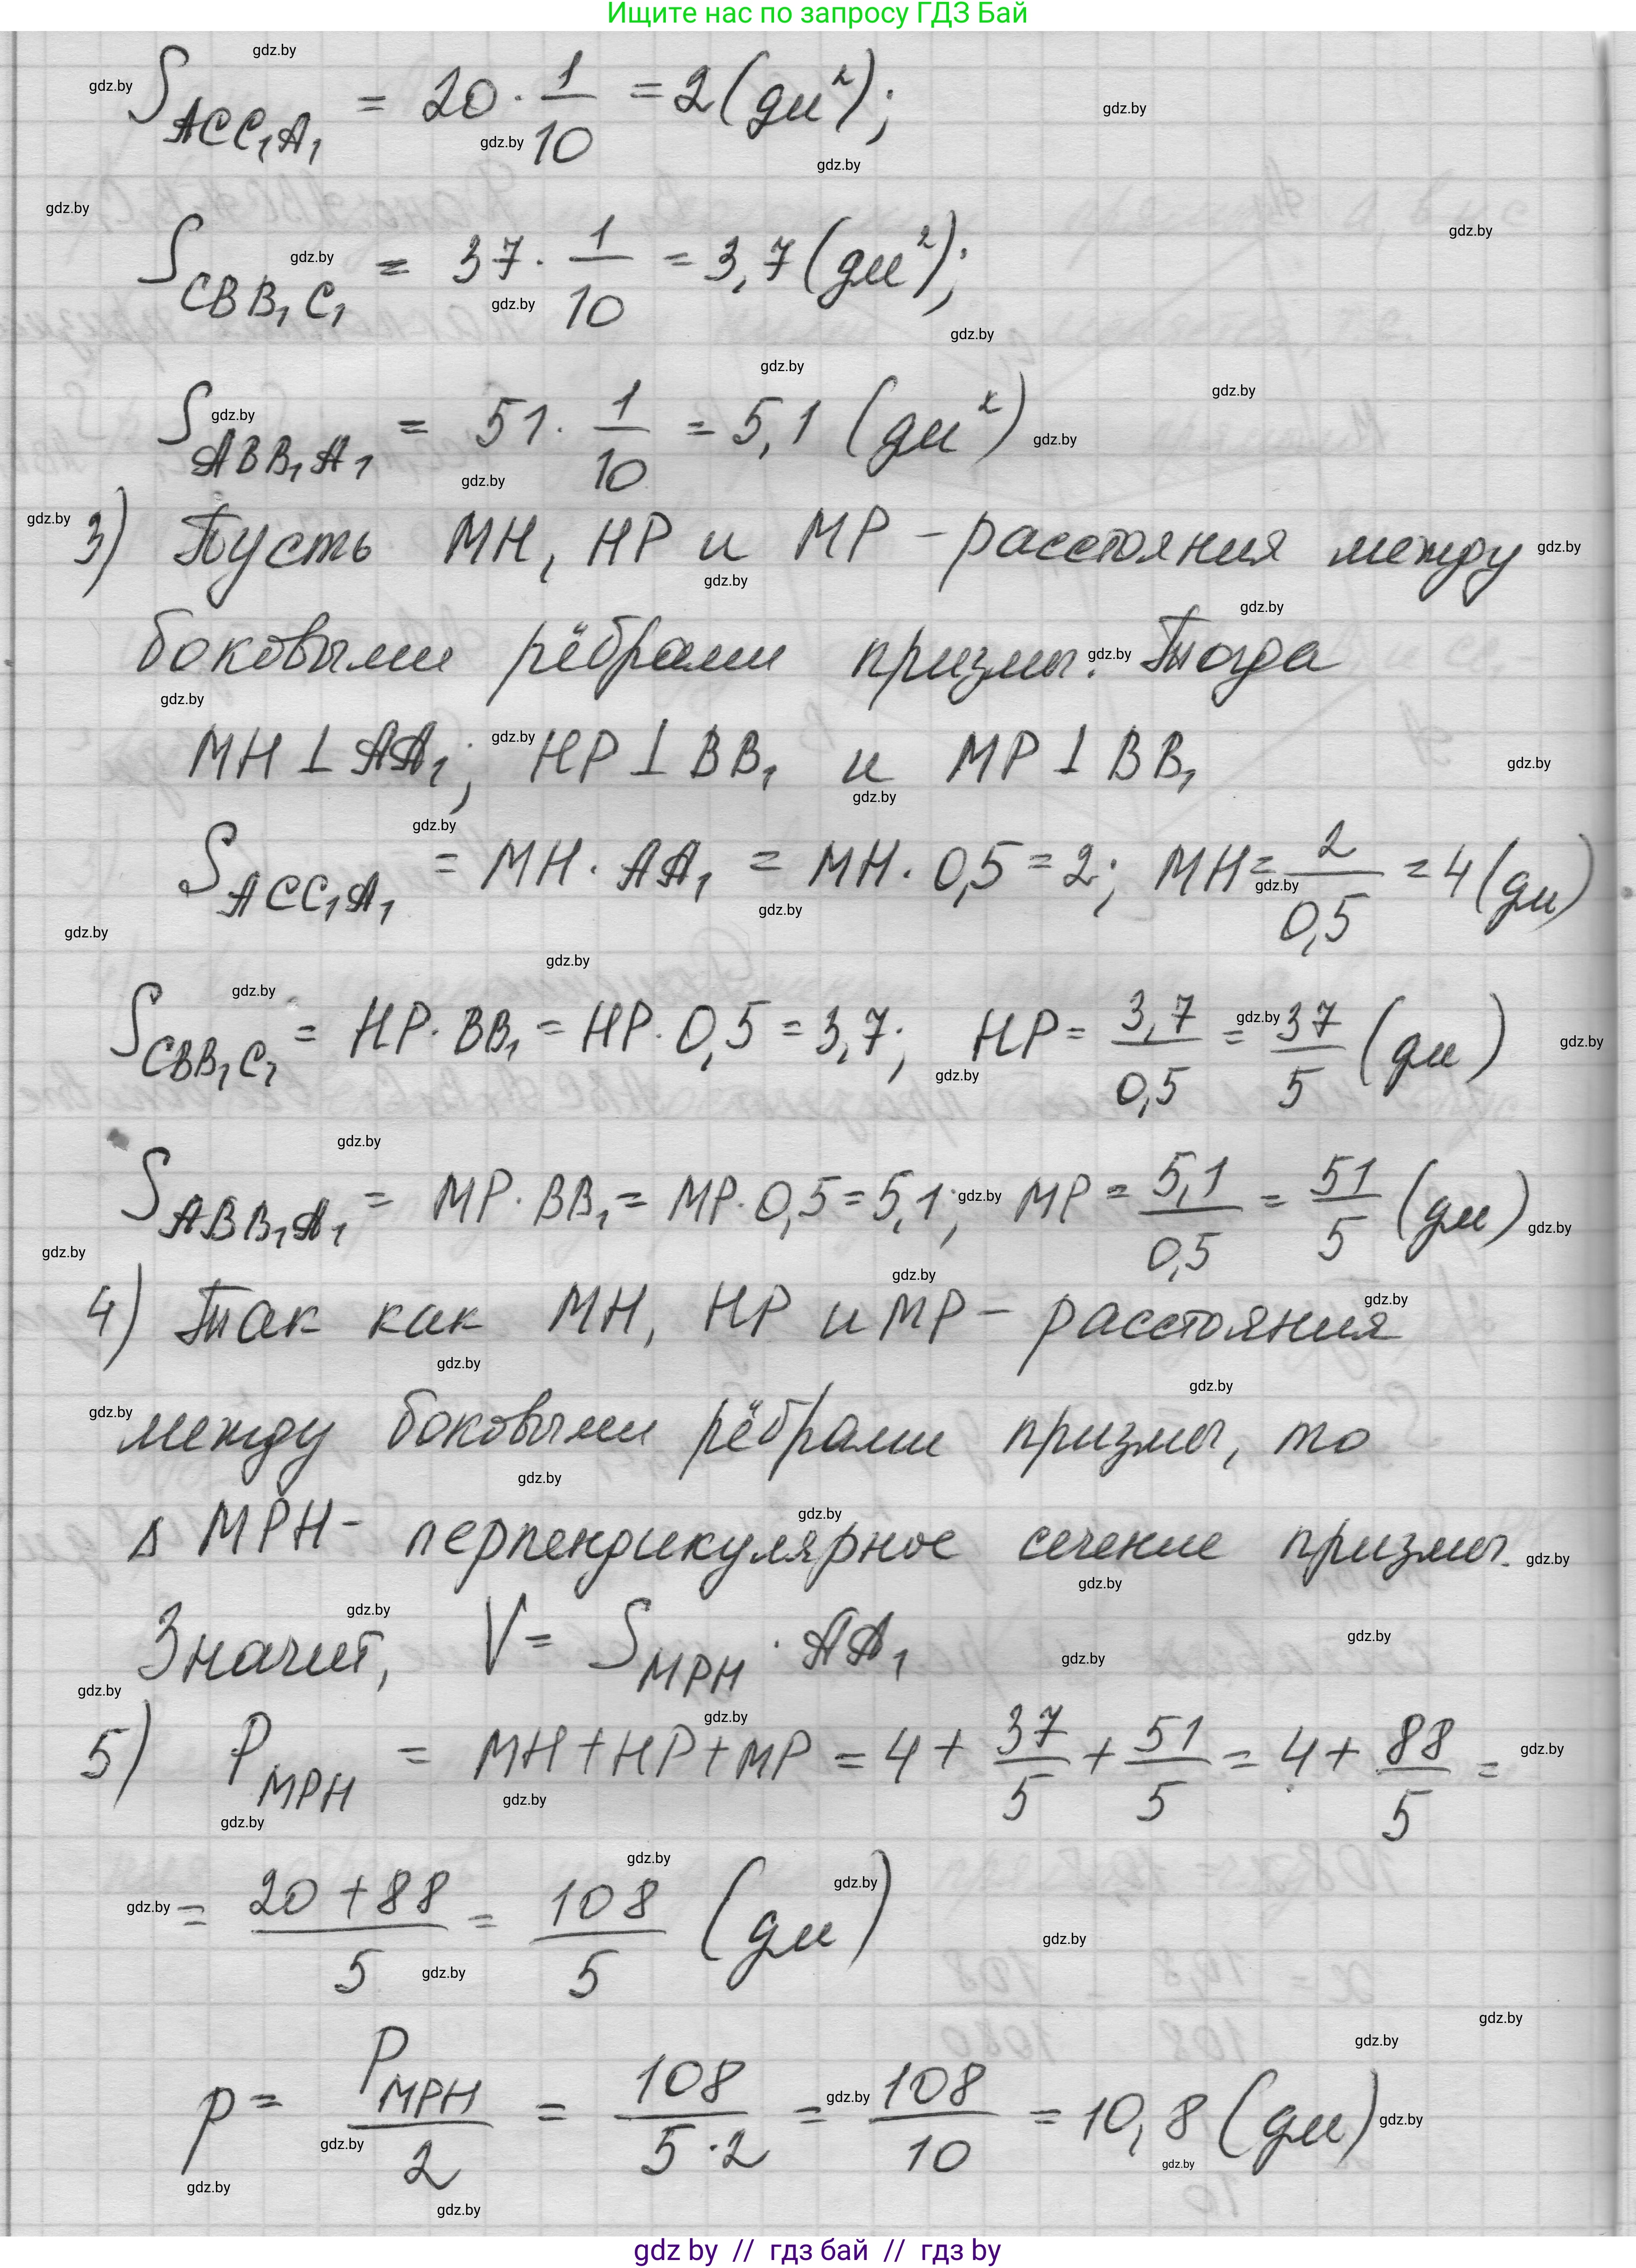 Ищите нас по запросу ГДЗ Бай
S_ACC₁A₁ = 20 · 1/10 = 2 (дм²);
S_CBB₁C₁ = 37 · 1/10 = 3,7 (дм²);
S_ABB₁A₁ = 51 · 1/10 = 5,1 (дм²)
3) Пусть MH, HP и MP – расстояния между
боковыми рёбрами призмы. Тогда
MH ⊥ AA₁; HP ⊥ BB₁ и MP ⊥ BB₁
S_ACC₁A₁ = MH · AA₁ = MH · 0,5 = 2; MH = 2/0,5 = 4 (дм)
S_CBB₁C₁ = HP · BB₁ = HP · 0,5 = 3,7; HP = 3,7/0,5 = 37/5 (дм)
S_ABB₁A₁ = MP · BB₁ = MP · 0,5 = 5,1; MP = 5,1/0,5 = 51/5 (дм)
4) Так как MH, HP и MP – расстояния
между боковыми рёбрами призмы, то
Δ MPH – перпендикулярное сечение призмы.
Значит, V = S_MPH · AA₁
5) P_MPH = MH + HP + MP = 4 + 37/5 + 51/5 = 4 + 88/5 =
= (20 + 88)/5 = 108/5 (дм)
p = P_MPH/2 = 108/(5 · 2) = 108/10 = 10,8 (дм)
gdz by // гдз бай // gdz by